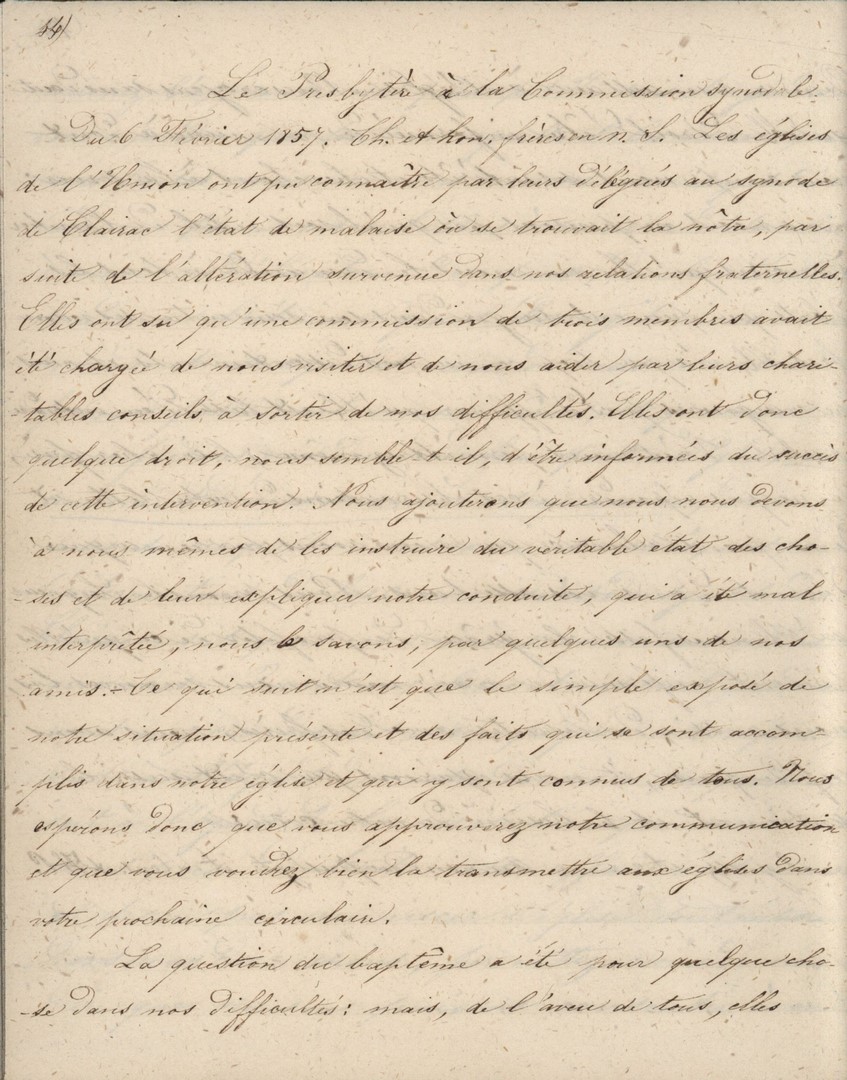 44)
Le Presbytère à la Commission synodale.
Du 6 Février 1857. Ch. et hon. frères en n. S. Les églises
de l'Union ont pu connaître par leurs délégués au synode
de Clairac l'état de malaise où se trouvait la nôtre, par
suite de l'altération survenue dans nos relations fraternelles.
Elles ont su qu'une commission de trois membres avait
été chargée de nous visiter et de nous aider par leurs chari-
-tables conseils à sortir de nos difficultés. Elles ont donc
quelque droit, nous semble t il, d'être informées du succès
de cette intervention. Nous ajouterons que nous nous devons
à nous mêmes de les instruire du véritable état des cho-
-ses et de leur expliquer notre conduite, qui a été mal
interprêtée, nous le savons, par quelques uns de nos
amis. - Ce qui suit n'est que le simple exposé de
notre situation présente et des faits qui se sont accom-
plis dans notre église et qui y sont connus de tous. Nous
espérons donc que vous approuverez notre communication
et que vous voudrez bien la transmettre aux églises dans
votre prochaine circulaire.
La question du baptême a été pour quelque cho-
-se dans nos difficultés: mais, de l'aveu de tous, elles